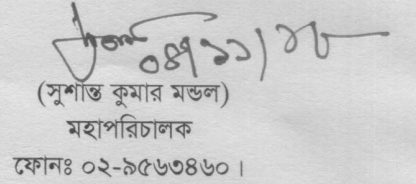 (সুশান্ত কুমার মন্ডল)
মহাপরিচালক
ফোনঃ ০২-৯৫৬৩৪৬০।